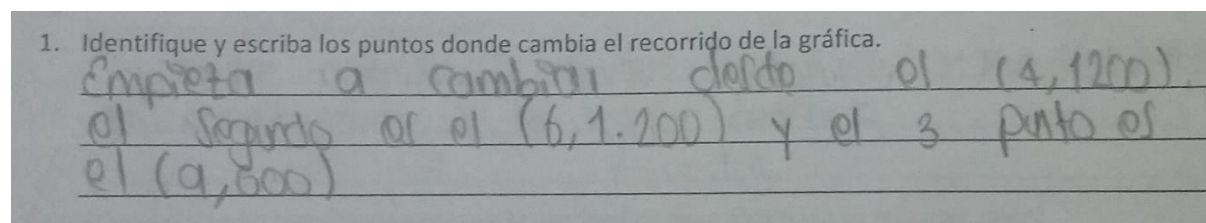 1. Identifique y escriba los puntos donde cambia el recorrido de la gráfica.
Empieza a cambiar desde el (4,1200)
el segundo es el (6,1.200) y el 3 punto es
el (9,600)